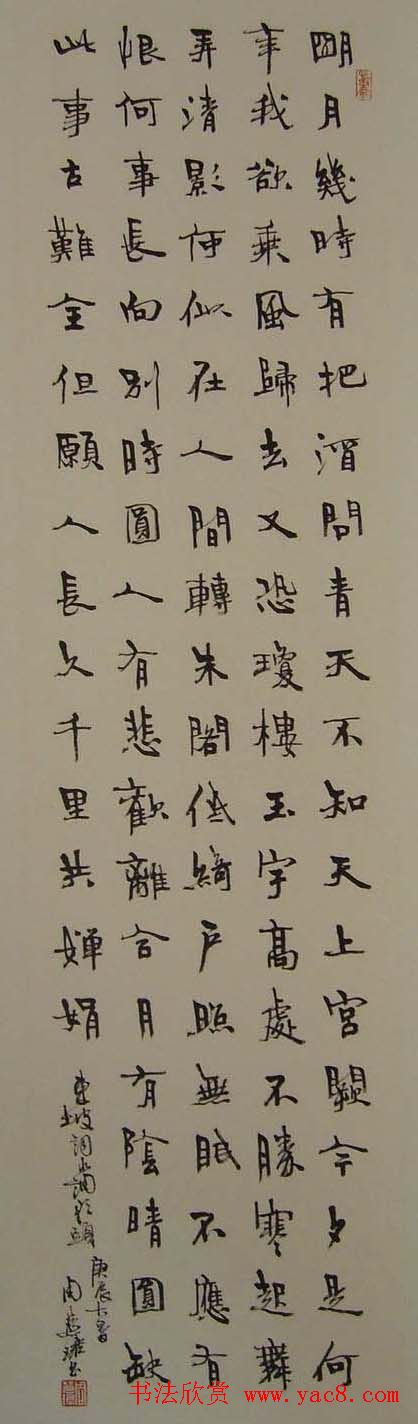 明月幾時有把酒問青天不知天上宮闕今夕是何
年我欲乘風歸去又恐瓊樓玉宇高處不勝寒起舞
弄清影何似在人間轉朱閣低綺戶照無眠不應有
恨何事長向別時圓人有悲歡離合月有陰晴圓缺
此事古難全但願人長久千里共嬋娟
東坡詞水調歌頭
庚辰
周
书法欣赏 www.yac8.com